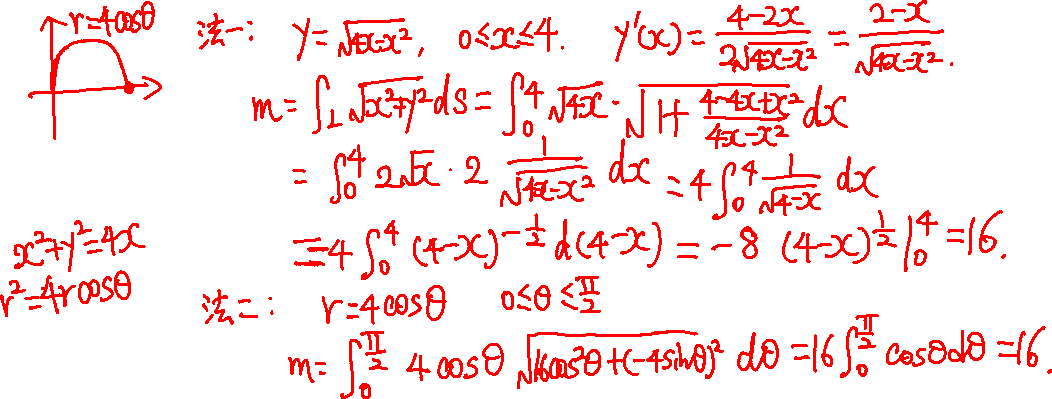 r=4cosθ
法一: y=√(4x-x²), 0≤x≤4. y'(x)=(4-2x)/(2√(4x-x²))=(2-x)/√(4x-x²).
m=∫_L √(x²+y²) ds=∫₀⁴ √(4x)·√(1+(4-4x+x²)/(4x-x²)) dx
=∫₀⁴ 2√x·2 1/√(4x-x²) dx=4∫₀⁴ 1/√(4-x) dx
=4∫₀⁴ (4-x)^(-1/2) d(4-x)=-8 (4-x)^(1/2)|₀⁴=16.
x²+y²=4x
r²=4rcosθ
法二: r=4cosθ 0≤θ≤π/2
m=∫₀^(π/2) 4cosθ √(16cos²θ+(-4sinθ)²) dθ=16∫₀^(π/2) cosθdθ=16.